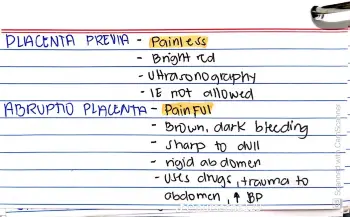 PLACENTA PREVIA - Painless
- Bright red
- Ultrasonography
- IE not allowed
ABRUPTIO PLACENTA - Painful
- Brown, dark bleeding
- sharp to dull
- rigid abdomen
- Uses drugs, trauma to
abdomen, ↑ BP
Scanned with CamScanner